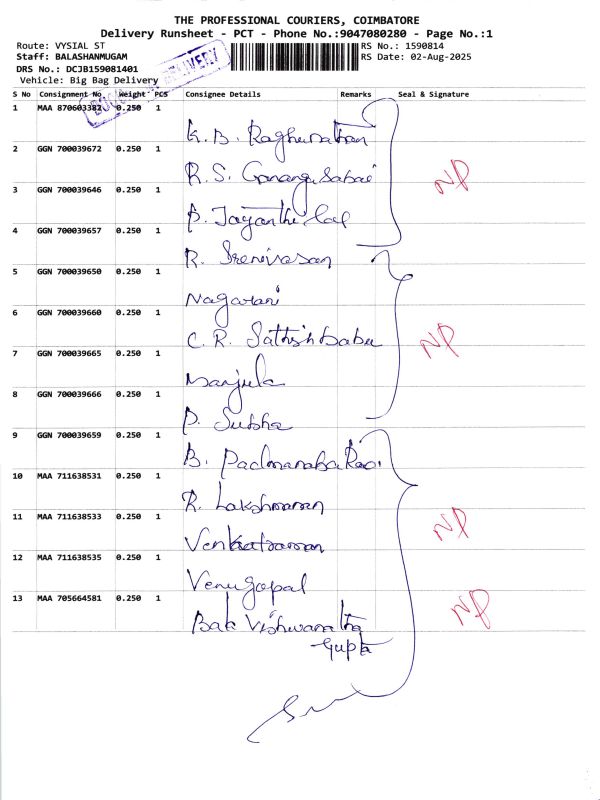 THE PROFESSIONAL COURIERS, COIMBATORE
Delivery Runsheet - PCT - Phone No.:9047080280 - Page No.:1
Route: VYSIAL ST
RS No.: 1590814
Staff: BALASHANMUGAM
RS Date: 02-Aug-2025
DRS No.: DCJB159081401
Vehicle: Big Bag Delivery
DELIVERY
S No Consignment No. Weight PCS Consignee Details Remarks Seal & Signature
1 MAA 870603382 0.250 1
K. B. Raghunathan
2 GGN 700039672 0.250 1
R. S. Ganangu Sabai
NP
3 GGN 700039646 0.250 1
P. Jayanthi Lal
4 GGN 700039657 0.250 1
R. Srenivasan
5 GGN 700039650 0.250 1
Nagarani
6 GGN 700039660 0.250 1
C. R. Sathish babu
NP
7 GGN 700039665 0.250 1
Manjula
8 GGN 700039666 0.250 1
P. Subha
9 GGN 700039659 0.250 1
B. Padmanaba Rao
10 MAA 711638531 0.250 1
R. Lakshmanan
11 MAA 711638533 0.250 1
Venkatraman
NP
12 MAA 711638535 0.250 1
Venugopal
13 MAA 705664581 0.250 1
Bala Vishwanatha
Gupta
NP